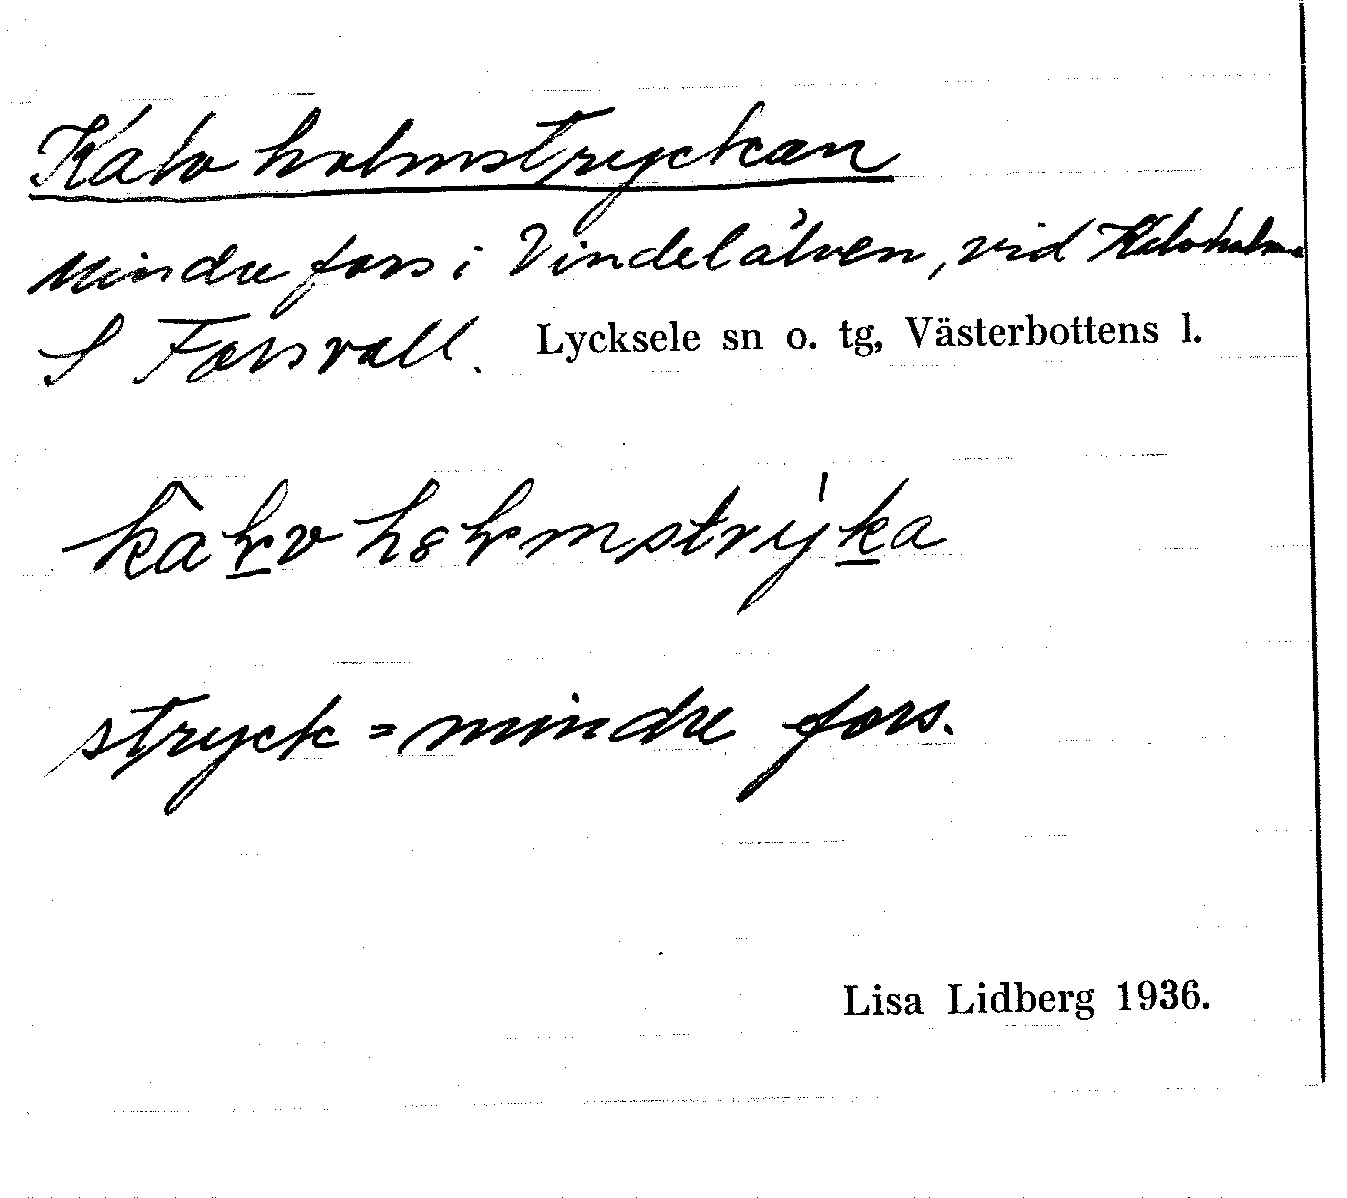 Kalvholmstryckan
Mindre fors i Vindelälven, vid Kalvholm
S Forsvall. Lycksele sn o. tg, Västerbottens l.
stryck = mindre fors.
Lisa Lidberg 1936.